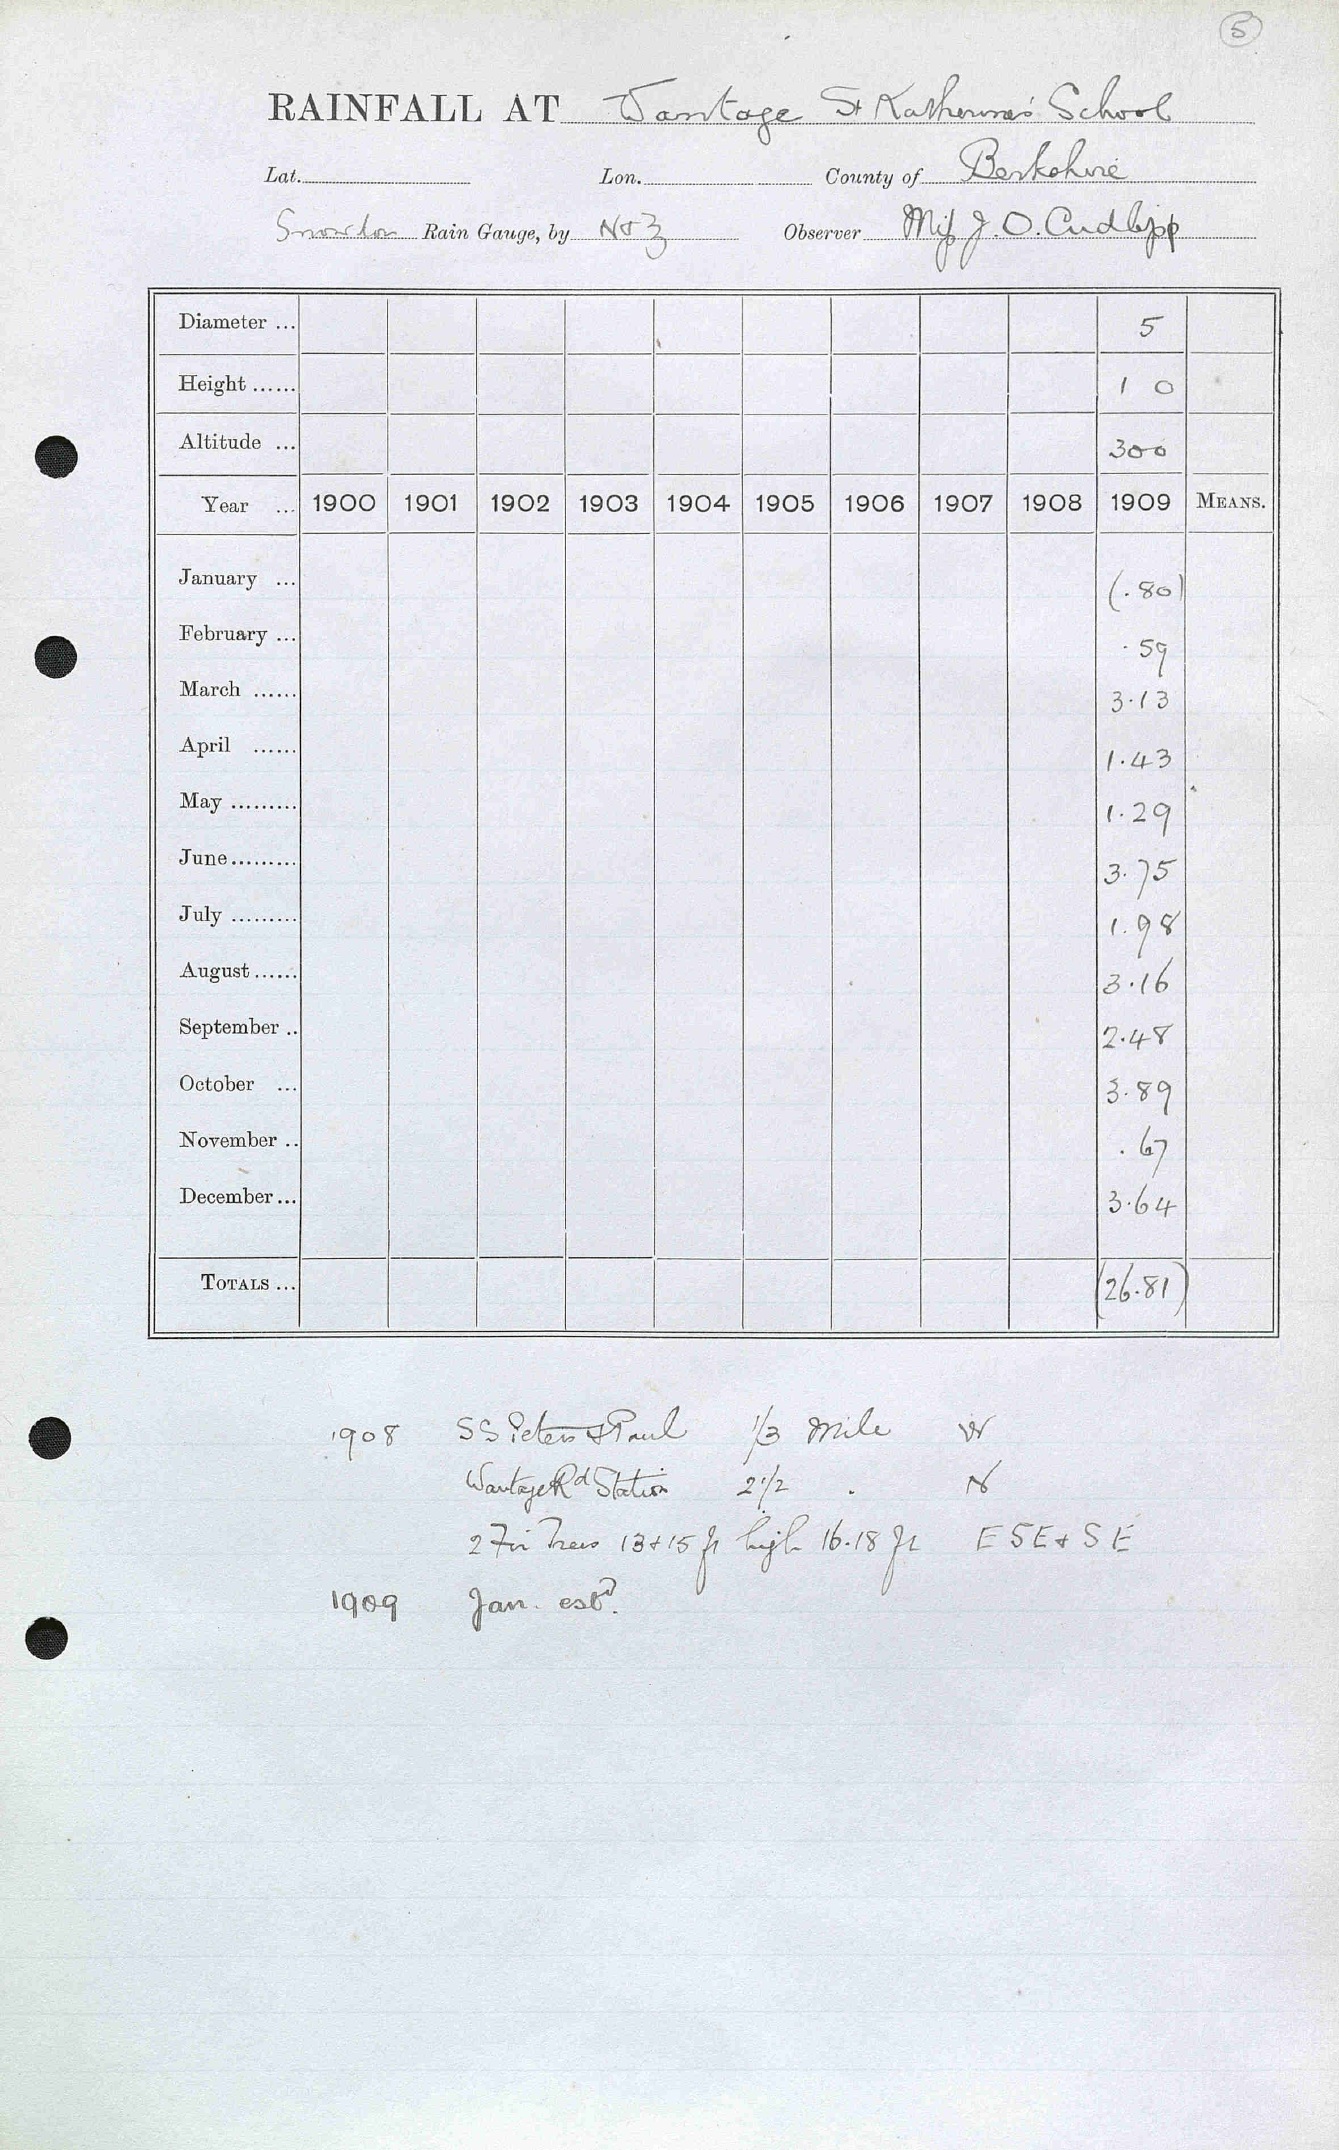 5
RAINFALL AT Wantage St Katherine's School
Lat. Lon. County of Berkshire
Snowdon Rain Gauge, by N & Z Observer Miss J. O. Cudlipp
Diameter ... 5
Height ...... 1 0
Altitude ... 300
Year ... 1900 1901 1902 1903 1904 1905 1906 1907 1908 1909 MEANS.
January ... (.80)
February ... .59
March ...... 3.13
April ...... 1.43
May ......... 1.29
June ......... 3.75
July ......... 1.98
August ...... 3.16
September .. 2.48
October ... 3.89
November .. .67
December ... 3.64
TOTALS ... (26.81)
1908 SS Peter & Paul 1/3 Mile W
Wantage Rd Station 2 1/2 . N
2 Fir Trees 13 & 15 ft high 16.18 ft E S E & S E
1909 Jan. estd.